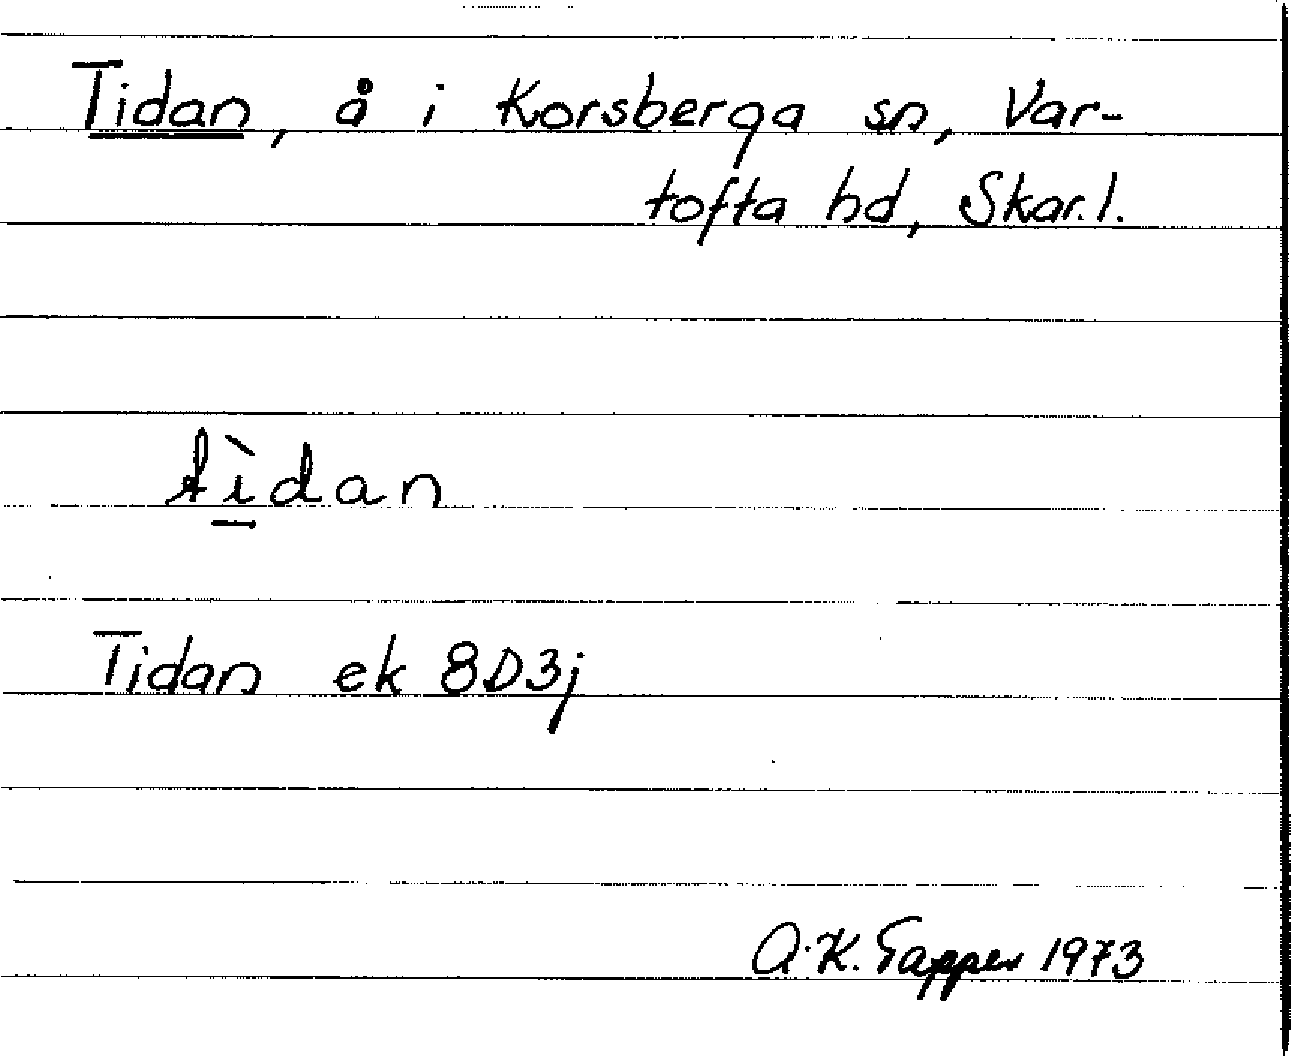 Tidan, å i Korsberga sn, Var-
tofta hd, Skar.l.
tìdan
Tidan ek 8D3j
A.K. Tapper 1973